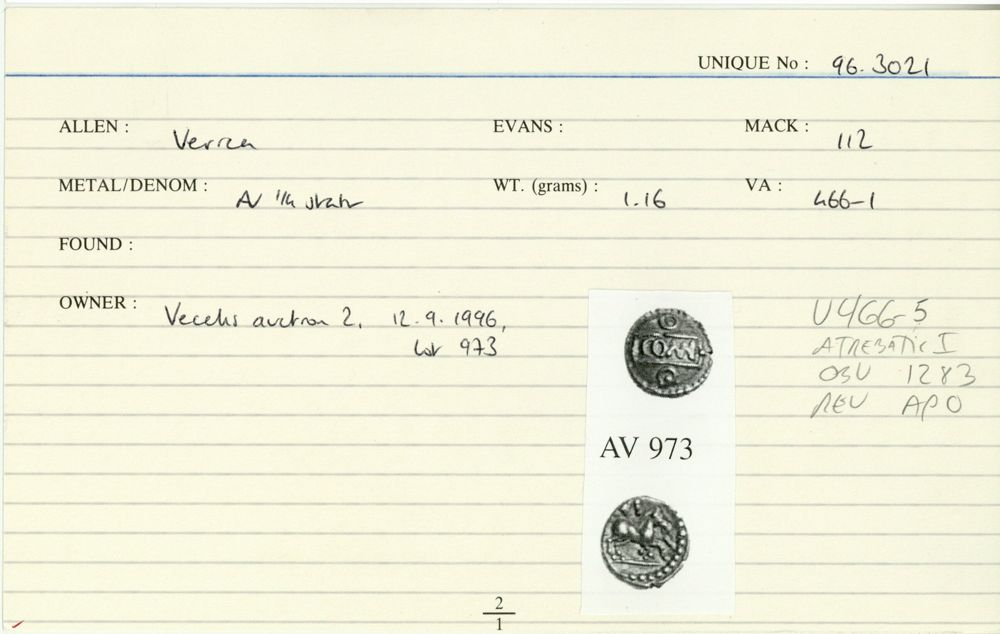 UNIQUE No : 96.3021
ALLEN : Verica
EVANS :
MACK : 112
METAL/DENOM : AV 1/4 stater
WT. (grams) : 1.16
VA : 466-1
FOUND :
OWNER : Vecchi auction 2, 12.9.1996,
Lot 973
V466-5
ATREBATIC I
OBV 1283
REV APO
AV 973
2
1